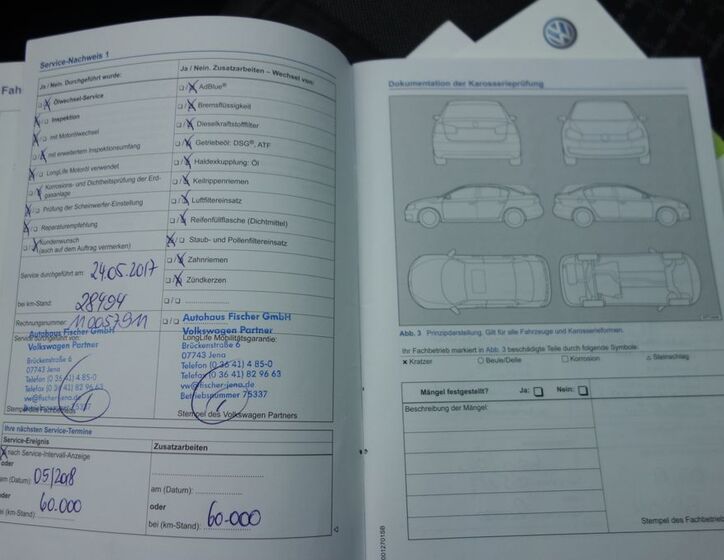 Service-Nachweis 1
Ja / Nein. Durchgeführt wurde:
Ölwechsel-Service
Inspektion
mit Motorölwechsel
mit erweitertem Inspektionsumfang
LongLife Motoröl verwendet
Korrosions- und Dichtheitsprüfung der Erd-
gasanlage
Prüfung der Scheinwerfer-Einstellung
Reparaturempfehlung
Kundenwunsch
(auch auf dem Auftrag vermerken)
Service durchgeführt am: 24.05.2017
bei km-Stand: 28494
Rechnungsnummer: 11005791
Service durchgeführt von:
Autohaus Fischer GmbH
Volkswagen Partner
Brückenstraße 6
07743 Jena
Telefon (0 36 41) 4 85-0
Telefax (0 36 41) 82 96 63
vw@fischer-jena.de
Betriebsnummer 75337
Stempel des Fachbetriebs
Ja / Nein. Zusatzarbeiten – Wechsel von:
AdBlue®
Bremsflüssigkeit
Dieselkraftstofffilter
Getriebeöl: DSG®, ATF
Haldexkupplung: Öl
Keilrippenriemen
Luftfiltereinsatz
Reifenfüllflasche (Dichtmittel)
Staub- und Pollenfiltereinsatz
Zahnriemen
Zündkerzen
Autohaus Fischer GmbH
Volkswagen Partner
LongLife Mobilitätsgarantie:
Brückenstraße 6
07743 Jena
Telefon (0 36 41) 4 85-0
Telefax (0 36 41) 82 96 63
vw@fischer-jena.de
Betriebsnummer 75337
Stempel des Volkswagen Partners
Ihre nächsten Service-Termine
Service-Ereignis
nach Service-Intervall-Anzeige
oder
am (Datum): 05/2018
oder
bei (km-Stand): 60.000
Zusatzarbeiten
am (Datum):
oder
bei (km-Stand): 60.000
Fah
Dokumentation der Karosserieprüfung
Abb. 3 Prinzipdarstellung. Gilt für alle Fahrzeuge und Karosserieformen.
Ihr Fachbetrieb markiert in Abb. 3 beschädigte Teile durch folgende Symbole:
× Kratzer ○ Beule/Delle □ Korrosion △ Steinschlag
Mängel festgestellt? Ja: Nein:
Beschreibung der Mängel:
Stempel des Fachbetrieb